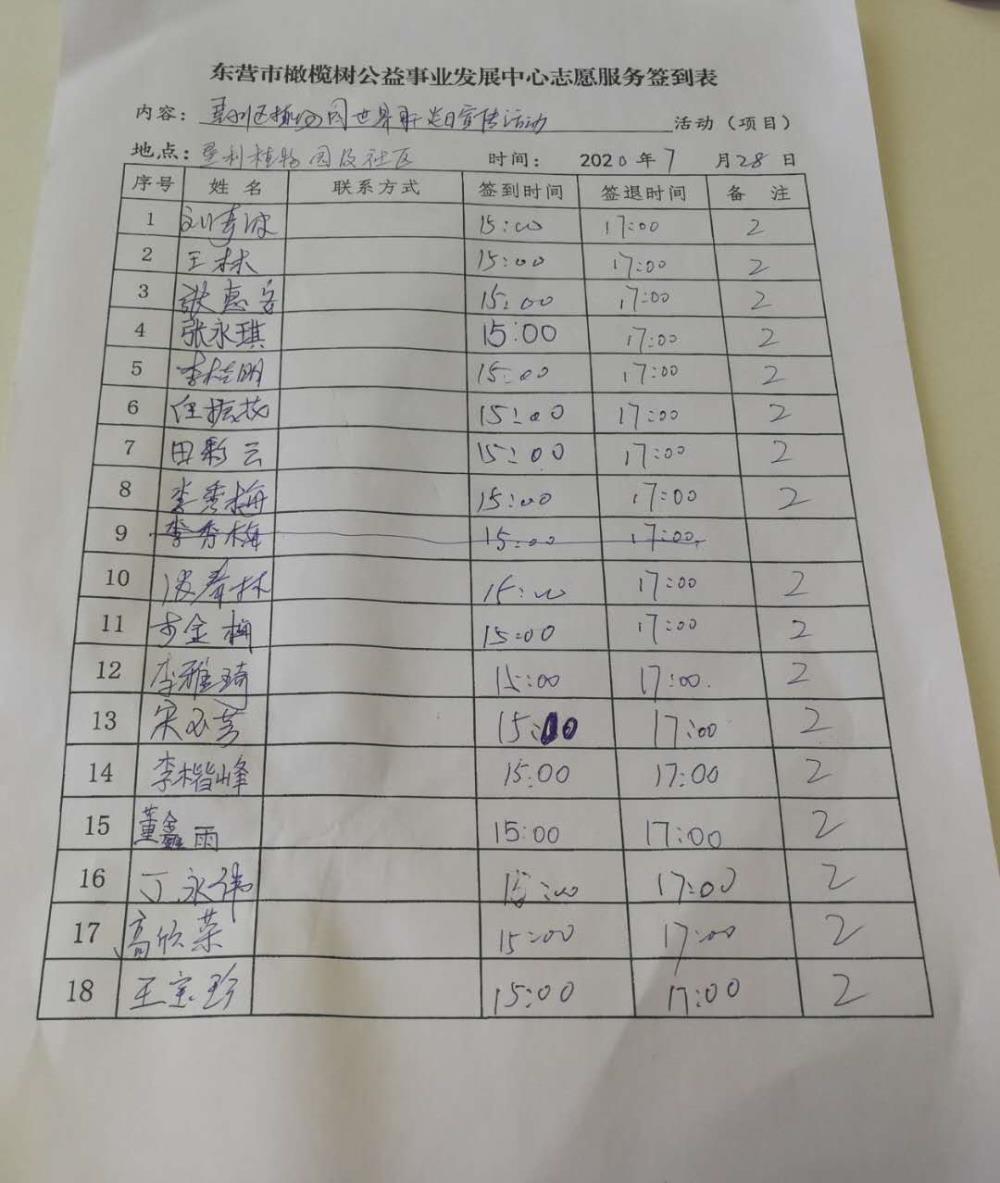 东营市橄榄树公益事业发展中心志愿服务签到表
内容：垦利区植物园世界肝炎日宣传活动 活动（项目）
地点：垦利植物园及社区 时间： 2020 年 7 月 28 日
序号 姓 名 联系方式 签到时间 签退时间 备 注
1 15:00 17:00 2
2 王林 15:00 17:00 2
3 张惠 15:00 17:00 2
4 张永琪 15:00 17:00 2
5 李桂明 15:00 17:00 2
6 任振 15:00 17:00 2
7 田彩云 15:00 17:00 2
8 李秀梅 15:00 17:00 2
9 李秀梅 15:00 17:00
10 林 15:00 17:00 2
11 金梅 15:00 17:00 2
12 李雅琦 15:00 17:00 2
13 宋 15:00 17:00 2
14 李楷峰 15:00 17:00 2
15 董鑫雨 15:00 17:00 2
16 丁永伟 15:00 17:00 2
17 高欣荣 15:00 17:00 2
18 王宝珍 15:00 17:00 2